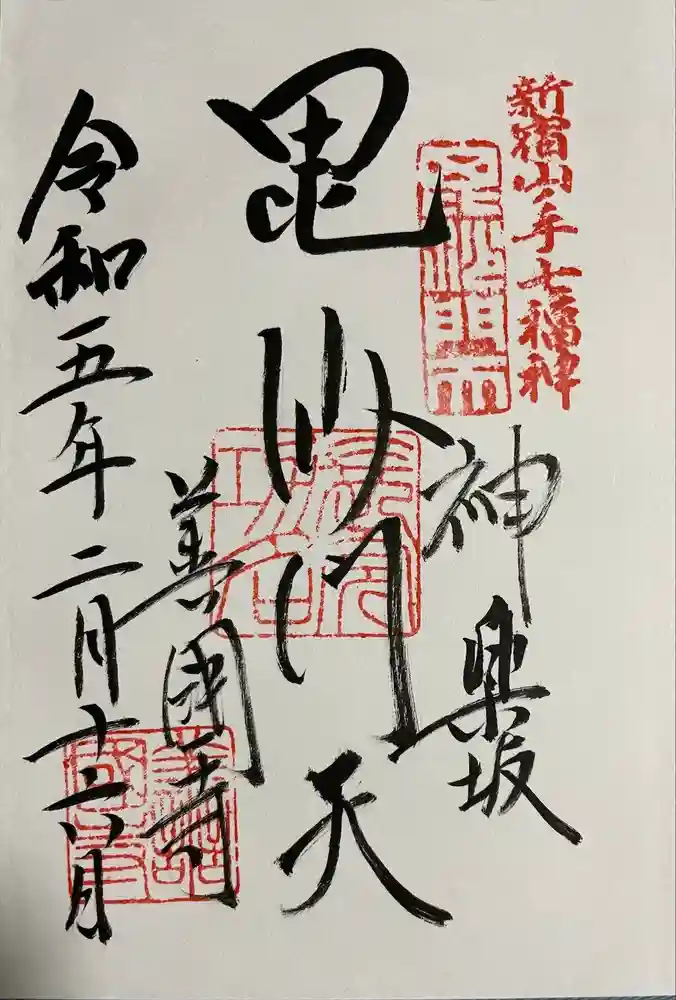 新宿山ノ手七福神
神樂坂
毘沙門天
善國寺
令和五年二月十二日